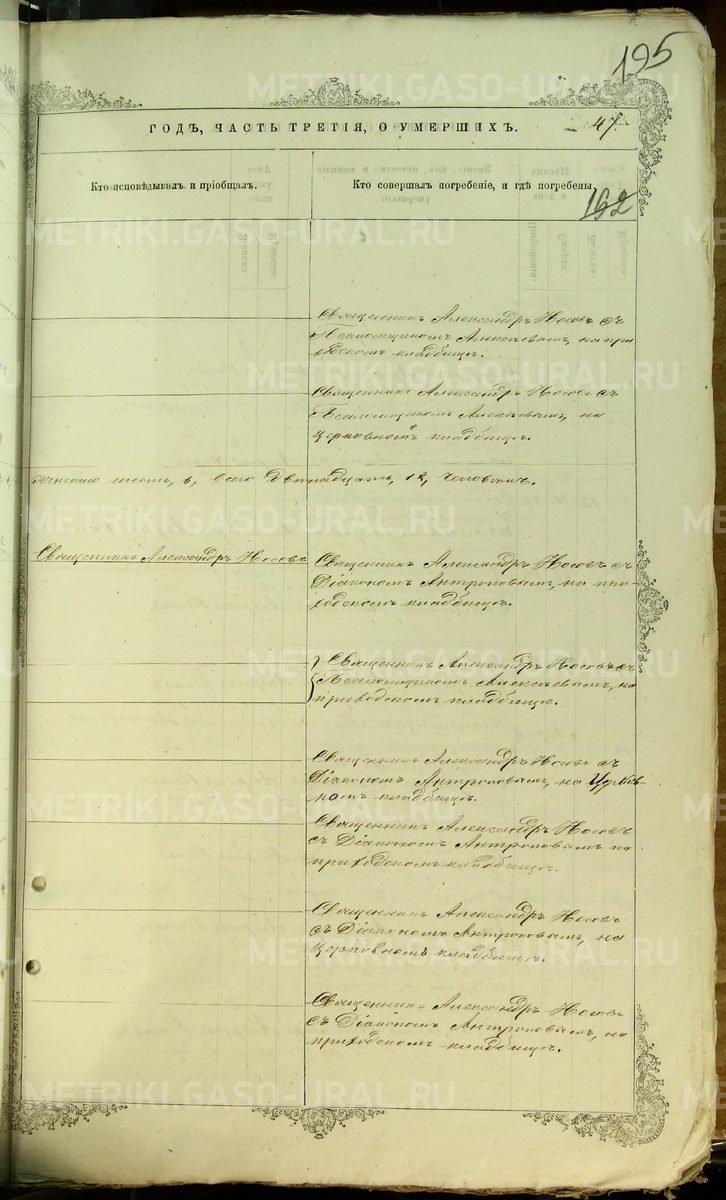 195
ГОДЪ, ЧАСТЬ ТРЕТІЯ, О УМЕРШИХЪ.
47
Кто исповѣдывалъ и пріобщалъ.
Кто совершалъ погребеніе, и гдѣ погребены.
162
Священникъ Александръ Носовъ съ
Псаломщикомъ Алексѣевымъ, на при
ходскомъ кладбищѣ.
Священникъ Александръ Носовъ съ
Псаломщикомъ Алексѣевымъ, на
церковномъ кладбищѣ.
Женскаго шесть, 6, всего двѣнадцать, 12, человѣкъ.
Священникъ Александръ Носовъ
Священникъ Александръ Носовъ съ
Діакономъ Антроповымъ, на при-
ходскомъ кладбищѣ.
Священникъ Александръ Носовъ съ
Псаломщикомъ Алексѣевымъ, на
приходскомъ кладбищѣ.
Священникъ Александръ Носовъ съ
Діакономъ Антроповымъ, на Церков-
номъ кладбищѣ.
Священникъ Александръ Носовъ
съ Діакономъ Антроповымъ на
приходскомъ кладбищѣ.
Священникъ Александръ Носовъ
съ Діакономъ Антроповымъ, на
Церковномъ кладбищѣ.
Священникъ Александръ Носовъ
съ Діакономъ Антроповымъ, на
приходскомъ кладбищѣ.
METRIKI.GASO-URAL.RU